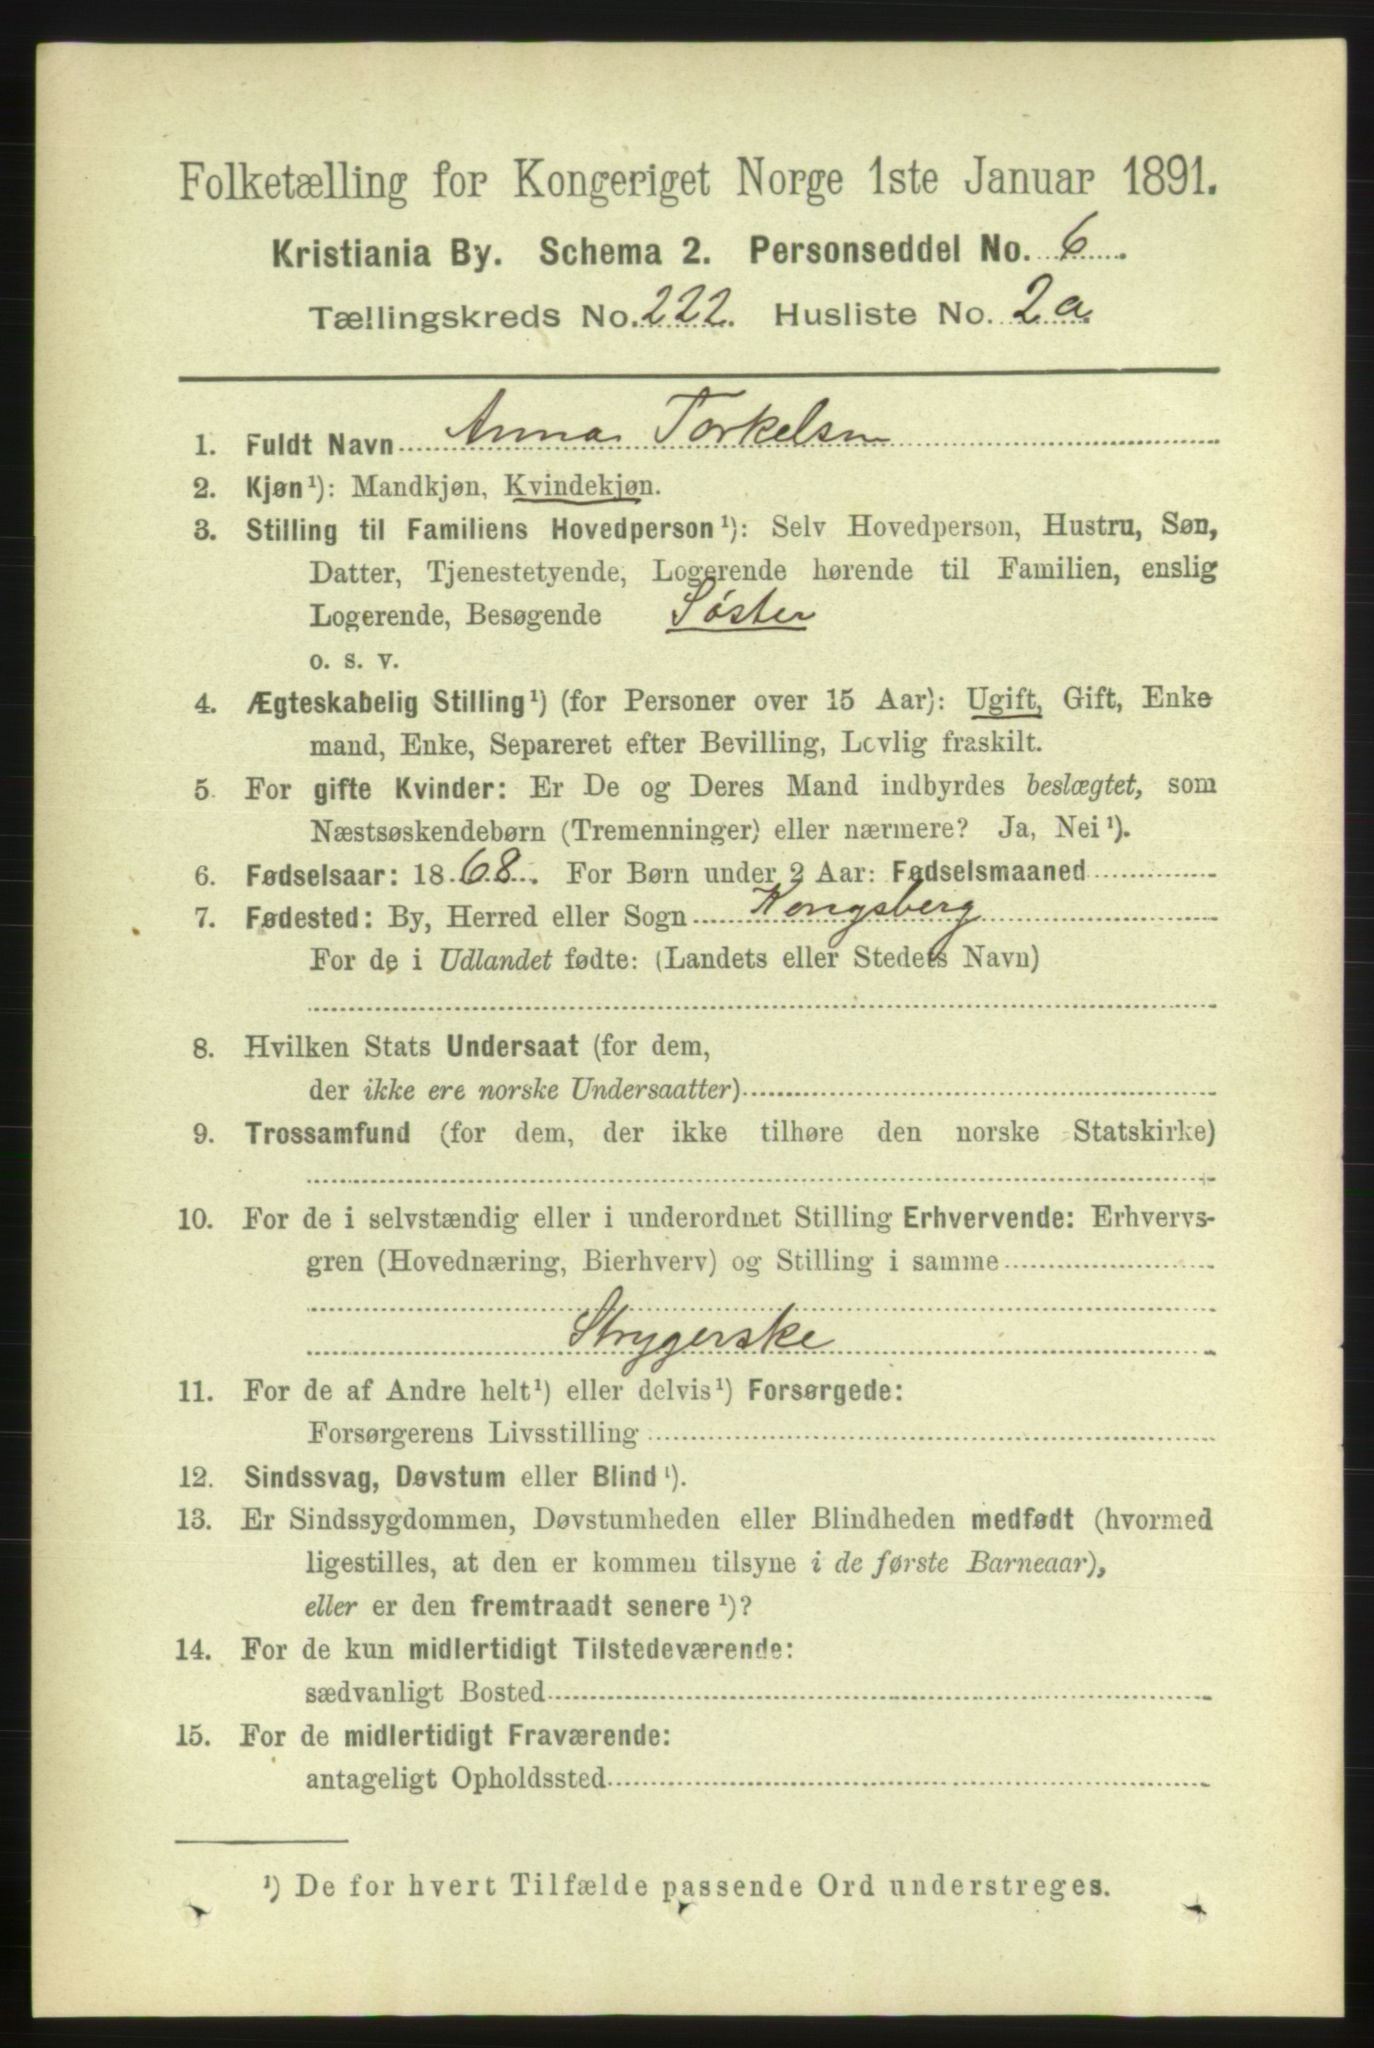 Folketælling for Kongeriget Norge 1ste Januar 1891.
Kristiania By. Schema 2. Personseddel No. 6.
Tællingskreds No. 222. Husliste No. 2a
1. Fuldt Navn Anna Torkelsen
2. Kjøn¹): Mandkjøn, Kvindekjøn.
3. Stilling til Familiens Hovedperson¹): Selv Hovedperson, Hustru, Søn,
Datter, Tjenestetyende, Logerende hørende til Familien, enslig
Logerende, Besøgende Søster
o. s. v.
4. Ægteskabelig Stilling¹) (for Personer over 15 Aar): Ugift, Gift, Enke
mand, Enke, Separeret efter Bevilling, Lovlig fraskilt.
5. For gifte Kvinder: Er De og Deres Mand indbyrdes beslægtet, som
Næstsøskendebørn (Tremenninger) eller nærmere? Ja, Nei¹).
6. Fødselsaar: 1868. For Børn under 2 Aar: Fødselsmaaned
7. Fødested: By, Herred eller Sogn Kongsberg
For de i Udlandet fødte: (Landets eller Stedets Navn)
8. Hvilken Stats Undersaat (for dem,
der ikke ere norske Undersaatter)
9. Trossamfund (for dem, der ikke tilhøre den norske Statskirke)
10. For de i selvstændig eller i underordnet Stilling Erhvervende: Erhvervs-
gren (Hovednæring, Bierhverv) og Stilling i samme
Strygerske
11. For de af Andre helt¹) eller delvis¹) Forsørgede:
Forsørgerens Livsstilling
12. Sindssvag, Døvstum eller Blind¹).
13. Er Sindssygdommen, Døvstumheden eller Blindheden medfødt (hvormed
ligestilles, at den er kommen tilsyne i de første Barneaar),
eller er den fremtraadt senere¹)?
14. For de kun midlertidigt Tilstedeværende:
sædvanligt Bosted
15. For de midlertidigt Fraværende:
antageligt Opholdssted
¹) De for hvert Tilfælde passende Ord understreges.